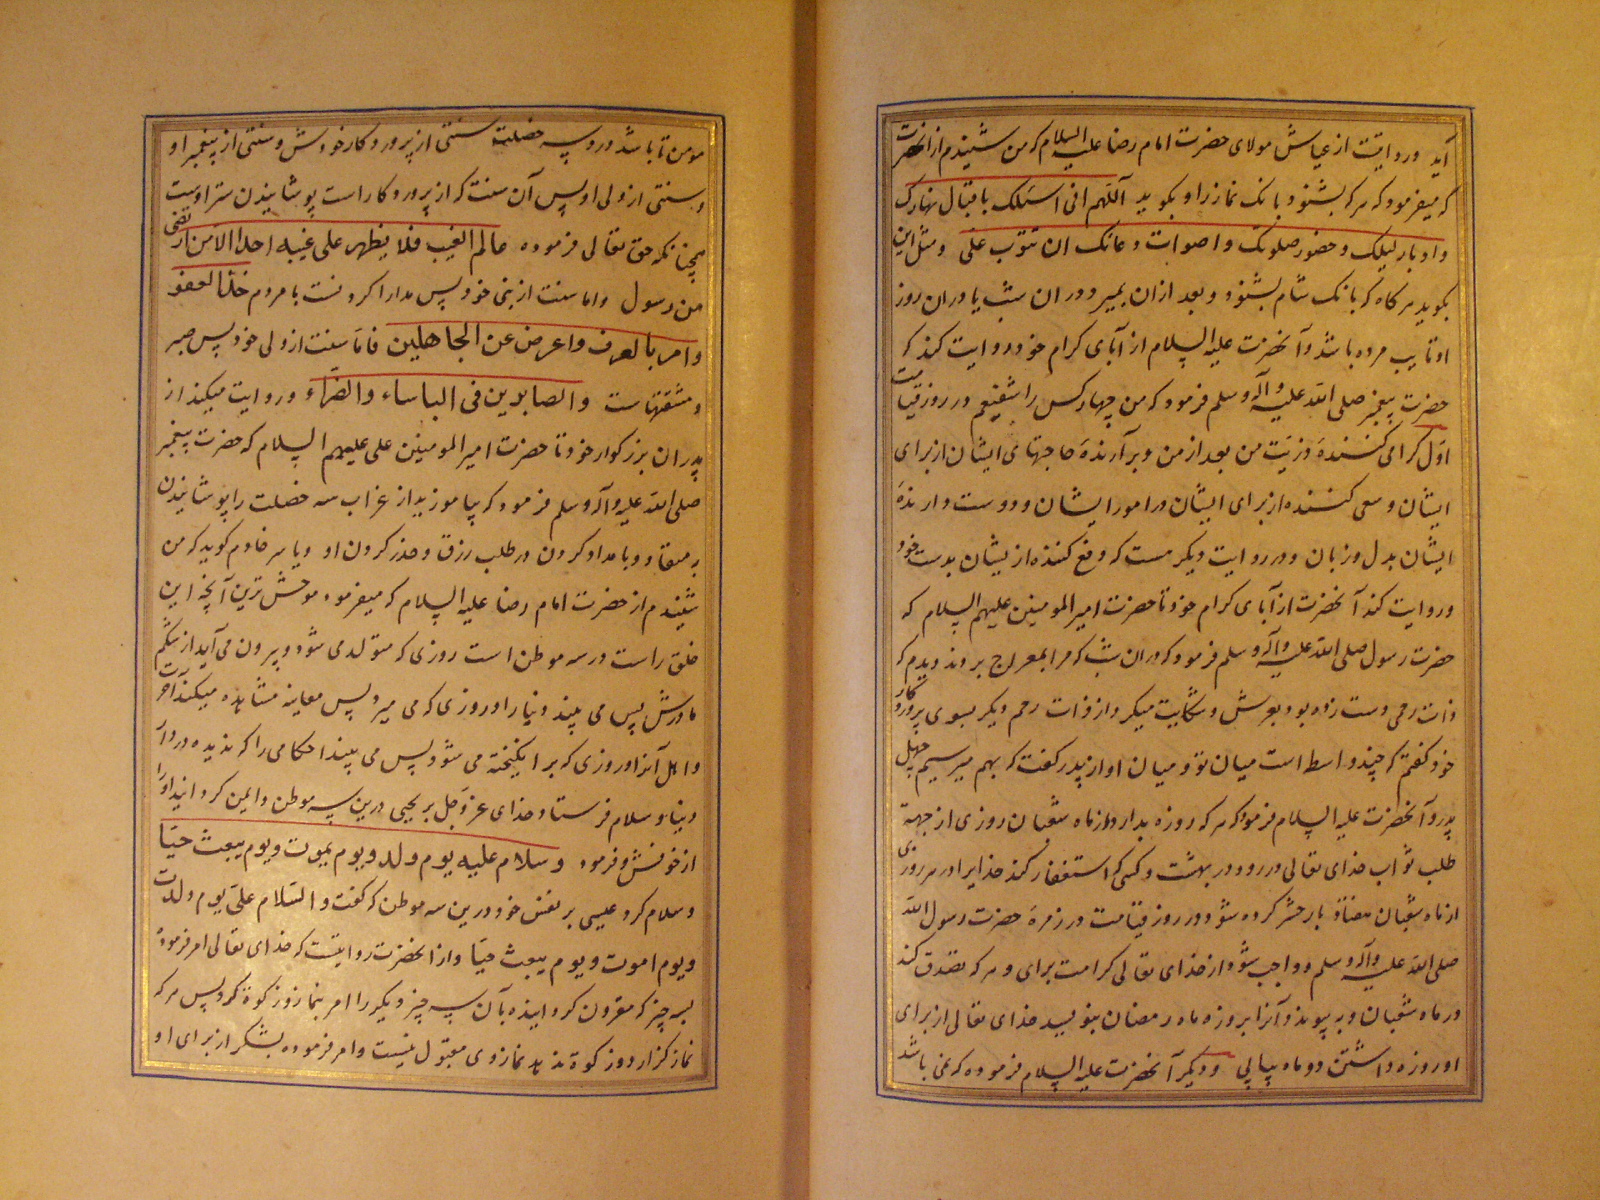 آید و روایتست از عیاش مولای حضرت امام رضا علیه السلام که من شنیدم از آنحضرت
که میفرمود که هر که بشنود بانک نماز را و بکوید اللهم انی اسئلک باقبال نهارک
و ادبار لیلک و حضور صلوتک و اصوات دعاتک ان تتوب علی و مثل این
بکوید هر کاه که بانک شام بشنود و بعد از ان بمیرد در ان شب یا در ان روز
او تایب مرده باشد و آنحضرت علیه السلام از آبای کرام خود روایت کند که
حضرت پیغمبر صلی الله علیه و آله و سلم فرمود که من چهار کس را شفیعم در روز قیامت
اول کرامی کننده ذریت من بعد از من و برآرنده حاجتهای ایشان از برای
ایشان و سعی کننده از برای ایشان در امور ایشان و دوست دارنده
ایشان بدل و زبان و در روایت دیکر هست که دفع کننده از یشان بدست خود
و روایت کند آنحضرت از آبای کرام خود تا حضرت امیر المومنین علیهم السلام که
حضرت رسول صلی الله علیه و آله و سلم فرمود که در ان شب که مرا بمعراج بردند دیدم که
ذات رحمی دست زده بود بعرش و شکایت میکرد از ذات رحم دیکر بسوی پروردکار
خود کفتم که چند واسطه است میان تو و میان او از پدر کفت که بهم میرسیم چهل
پدر و آنحضرت علیه السلام فرمود که هر که روزه بدارد از ماه شعبان روزی از جهة
طلب ثواب خدای تعالی در رود در بهشت و کسی که استغفار کند خدایرا در هر روزی
از ماه شعبان هفتاد بار حشر کرده شود در روز قیامت در زمره حضرت رسول الله
صلی الله علیه و آله و سلم و واجب شود از خدای تعالی کرامت برای و هر که تصدق کند
در ماه شعبان و به پیوندد آنرا بروزه ماه رمضان بنویسد خدای تعالی از برای
او روزه داشتن دو ماه پیاپی و دیکر آنحضرت علیه السلام فرموده که نمی باشد
مومن تا باشد در و سه خصلت سنتی از پروردکار خودش و سنتی از پیغمبر او
و سنتی از ولی او پس آن سنت که از پروردکار است پوشانیدن سر اوست
همچنانکه حق تعالی فرموده عالم الغیب فلا یظهر علی غیبه احدا الا من ارتضی
من رسول و اما سنت از نبی خود پس مدارا کردنست با مردم خذ العفو
وامر بالعرف واعرض عن الجاهلین فاما سنت از ولی خود پس صبر
و مشقتهاست والصابرین فی الباساء والضراء و روایت میکند از
پدران بزرکوار خود تا حضرت امیر المومنین علی علیهم السلام که حضرت پیغمبر
صلی الله علیه و آله و سلم فرمود که بیاموزید از غراب سه خصلت را پوشانیدن
به سفاد و بامداد کردن در طلب رزق و حذر کردن او و یاسر خادم کوید که من
شنیدم از حضرت امام رضا علیه السلام که میفرمود موحش ترین آنچه این
خلق راست در سه موطن است روزی که متولد می شود و بیرون می آید از شکم
مادرش پس می بیند دنیا را و روزی که می میرد پس معاینه مشاهده میکند آخرت
و اهل آنرا و روزی که بر انکیخته می شود پس می بیند احکامی را که ندیده در دار
دنیا و سلام فرستاد خدای عز و جل بر یحیی درین سه موطن و ایمن کردانید او را
از خوفش و فرمود وسلام علیه یوم ولد ویوم یموت ویوم یبعث حیا
و سلام کرد عیسی بر نفس خود درین سه موطن که کفت والسلام علی یوم ولدت
ویوم اموت ویوم یبعث حیا و از آنحضرت روایتست که خدای تعالی امر فرموده
بسه چیز که مقرون کردانیده بآن سه چیز دیکر را امر بنماز و زکوة کرد پس هر که
نماز کزارد و زکوة ندهد نماز وی مقبول نیست و امر فرموده بشکر از برای او